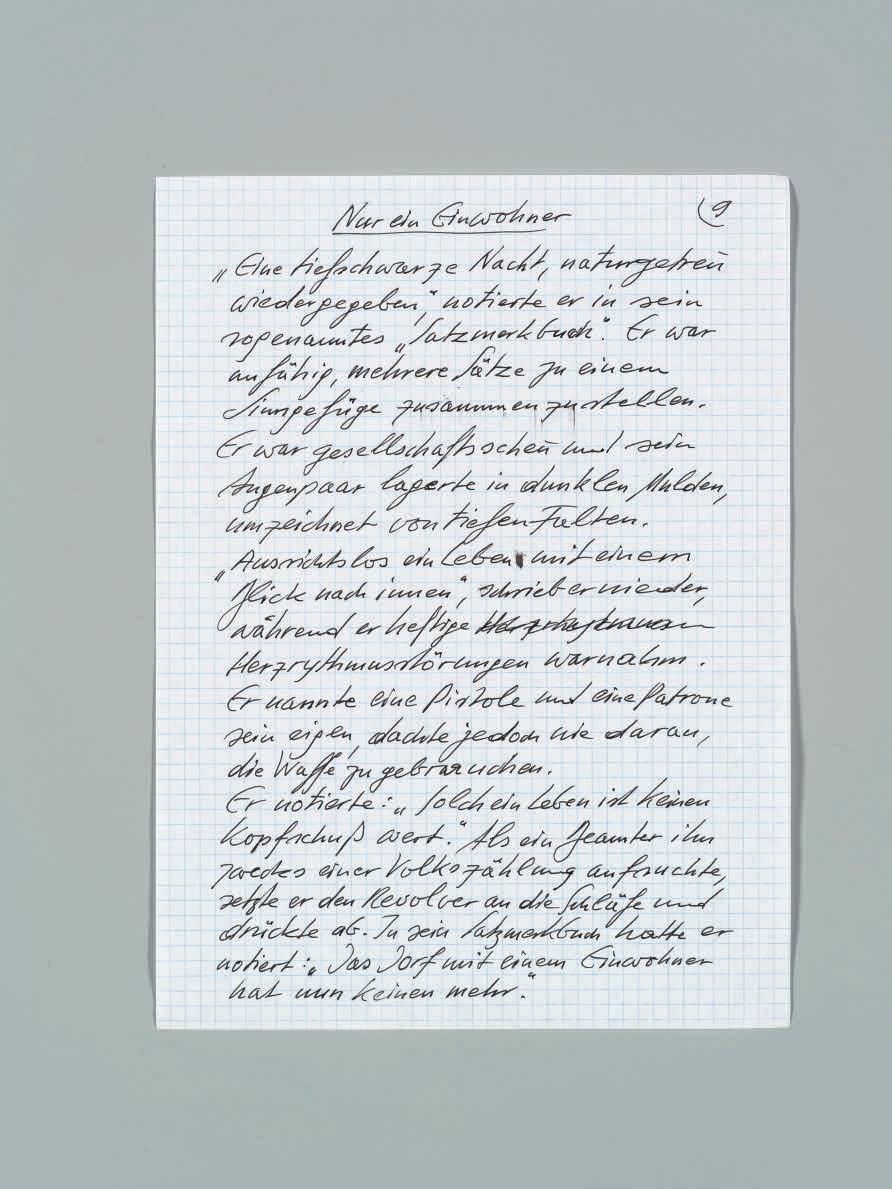 Nur ein Einwohner
9
„Eine tiefschwarze Nacht, naturgetreu
wiedergegeben", notierte er in sein
sogenanntes „Satzmerkbuch". Er war
unfähig, mehrere Sätze zu einem
Sinngefüge zusammenzustellen.
Er war gesellschaftsscheu und sein
Augenpaar lagerte in dunklen Mulden,
umzeichnet von tiefen Falten.
„Aussichtslos ein Leben mit einem
Blick nach innen", schrieb er nieder,
während er heftige
Herzrythmusstörungen warnahm.
Er nannte eine Pistole und eine Patrone
sein eigen, dachte jedoch nie daran,
die Waffe zu gebrauchen.
Er notierte: „Solch ein Leben ist keinen
Kopfschuß wert." Als ein Beamter ihn
zwecks einer Volkszählung aufsuchte,
setzte er den Revolver an die Schläfe und
drückte ab. In sein Satzmerkbuch hatte er
notiert: „Das Dorf mit einem Einwohner
hat nun keinen mehr."